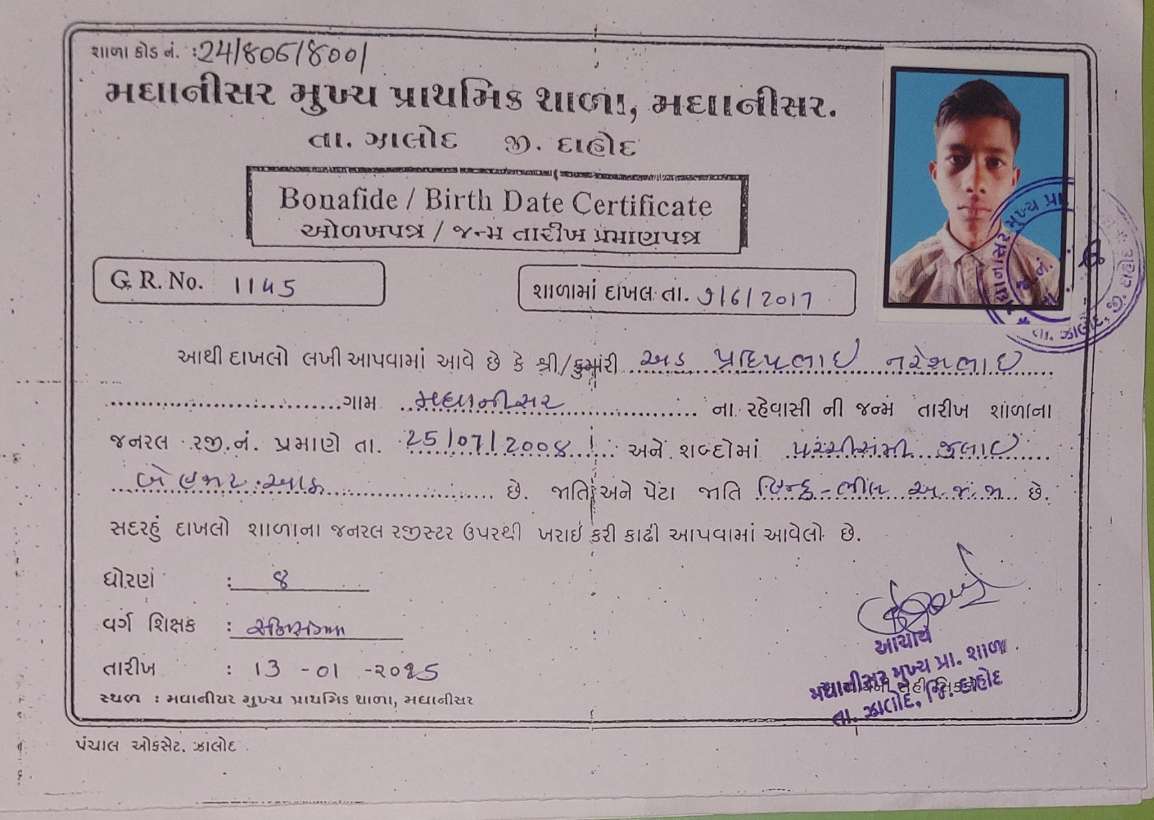 શાળા કોડ નં. :24/806/8001
મઘાનીસર મુખ્ય પ્રાથમિક શાળા, મઘાનીસર.
તા. ઝાલોદ જી. દાહોદ
Bonafide / Birth Date Certificate
ઓળખપત્ર / જન્મ તારીખ પ્રમાણપત્ર
G R. No. 1145
શાળામાં દાખલ તા. 9/6/2017
આથી દાખલો લખી આપવામાં આવે છે કે શ્રી/કુમારી પ્રદિપભાઈ નરેશભાઈ
ગામ મઘાનીસર ના રહેવાસી ની જન્મ તારીખ શાળાના
જનરલ રજી.નં. પ્રમાણે તા. 25/07/2008 અને શબ્દોમાં પચ્ચીસમી જુલાઈ
બે હજાર આઠ છે. જાતિ અને પેટા જાતિ હિન્દુ-ભીલ અ.જ.જા છે.
સદરહું દાખલો શાળાના જનરલ રજીસ્ટર ઉપરથી ખરાઈ કરી કાઢી આપવામાં આવેલો છે.
ધોરણ : ૪
વર્ગ શિક્ષક :
તારીખ : 13 -01 -2025
સ્થળ : મઘાનીસર મુખ્ય પ્રાથમિક શાળા, મઘાનીસર
આચાર્ય
મઘાનીસર મુખ્ય પ્રા. શાળા
તા. ઝાલોદ, જિ. દાહોદ
પંચાલ ઓફસેટ, ઝાલોદ